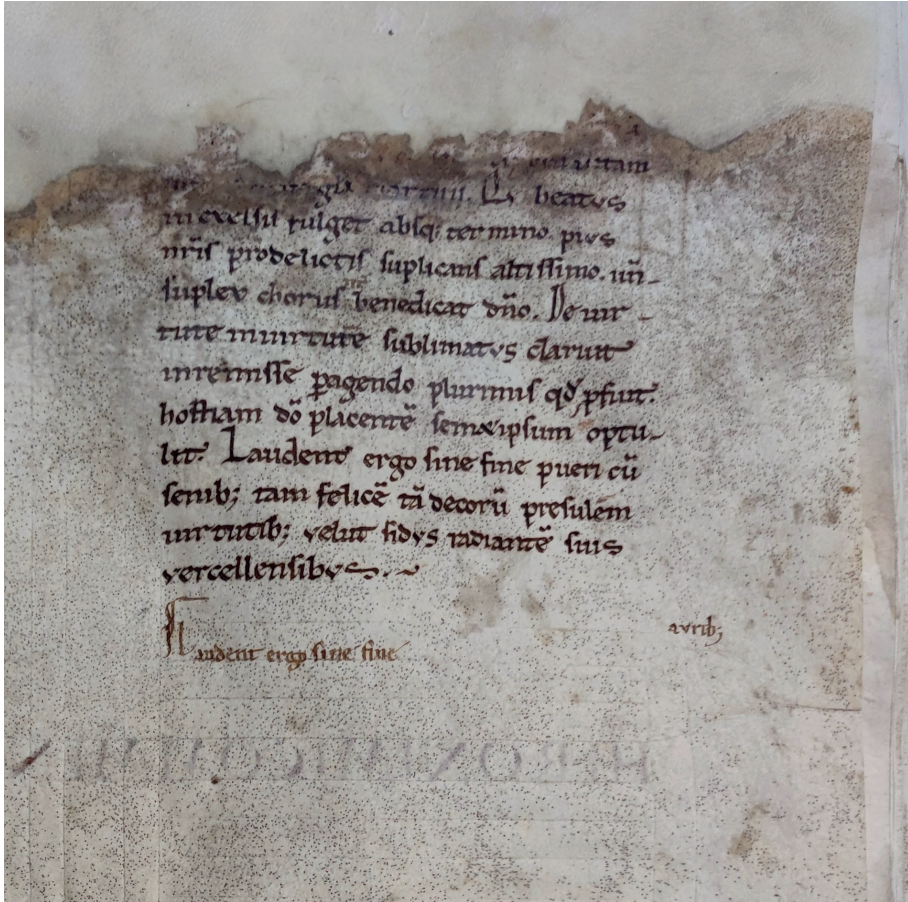 uitam
beatus
in exelsis fulget absq; termino. pius
nr̃is pro delictis suplicans altissimo. uñ-
suplex chorus benedicat dño. De uir-
tute in uirtute sublimatus claruit
inremisse pagendo plurimis qđ pfuit.
hostiam dõ placentẽ semetipsum optu-
lit. Laudent ergo sine fine pueri cũ
senib; tam felicẽ tã decorũ presulem
uirtutib; velut sidus radiantẽ suis
vercellensibus.
audent ergo sine fine
aurib;